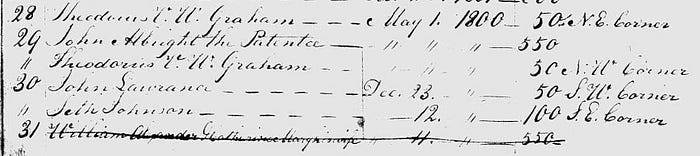 28 Theodorus V. W. Graham - - - May 1. 1800 - 50 N.E. Corner
29 John Albright the Patentee - " " " - 550
" Theodorus V. W. Graham - " " " 50 N. W Corner
30 John Lawrance - - - - - - Dec. 23. " - 50 S. W. Corner
" Seth Johnson - - - - - - - 12. " - 100 S.E. Corner
31 William Alexander & Catherine Mary his wife " 4. " 550